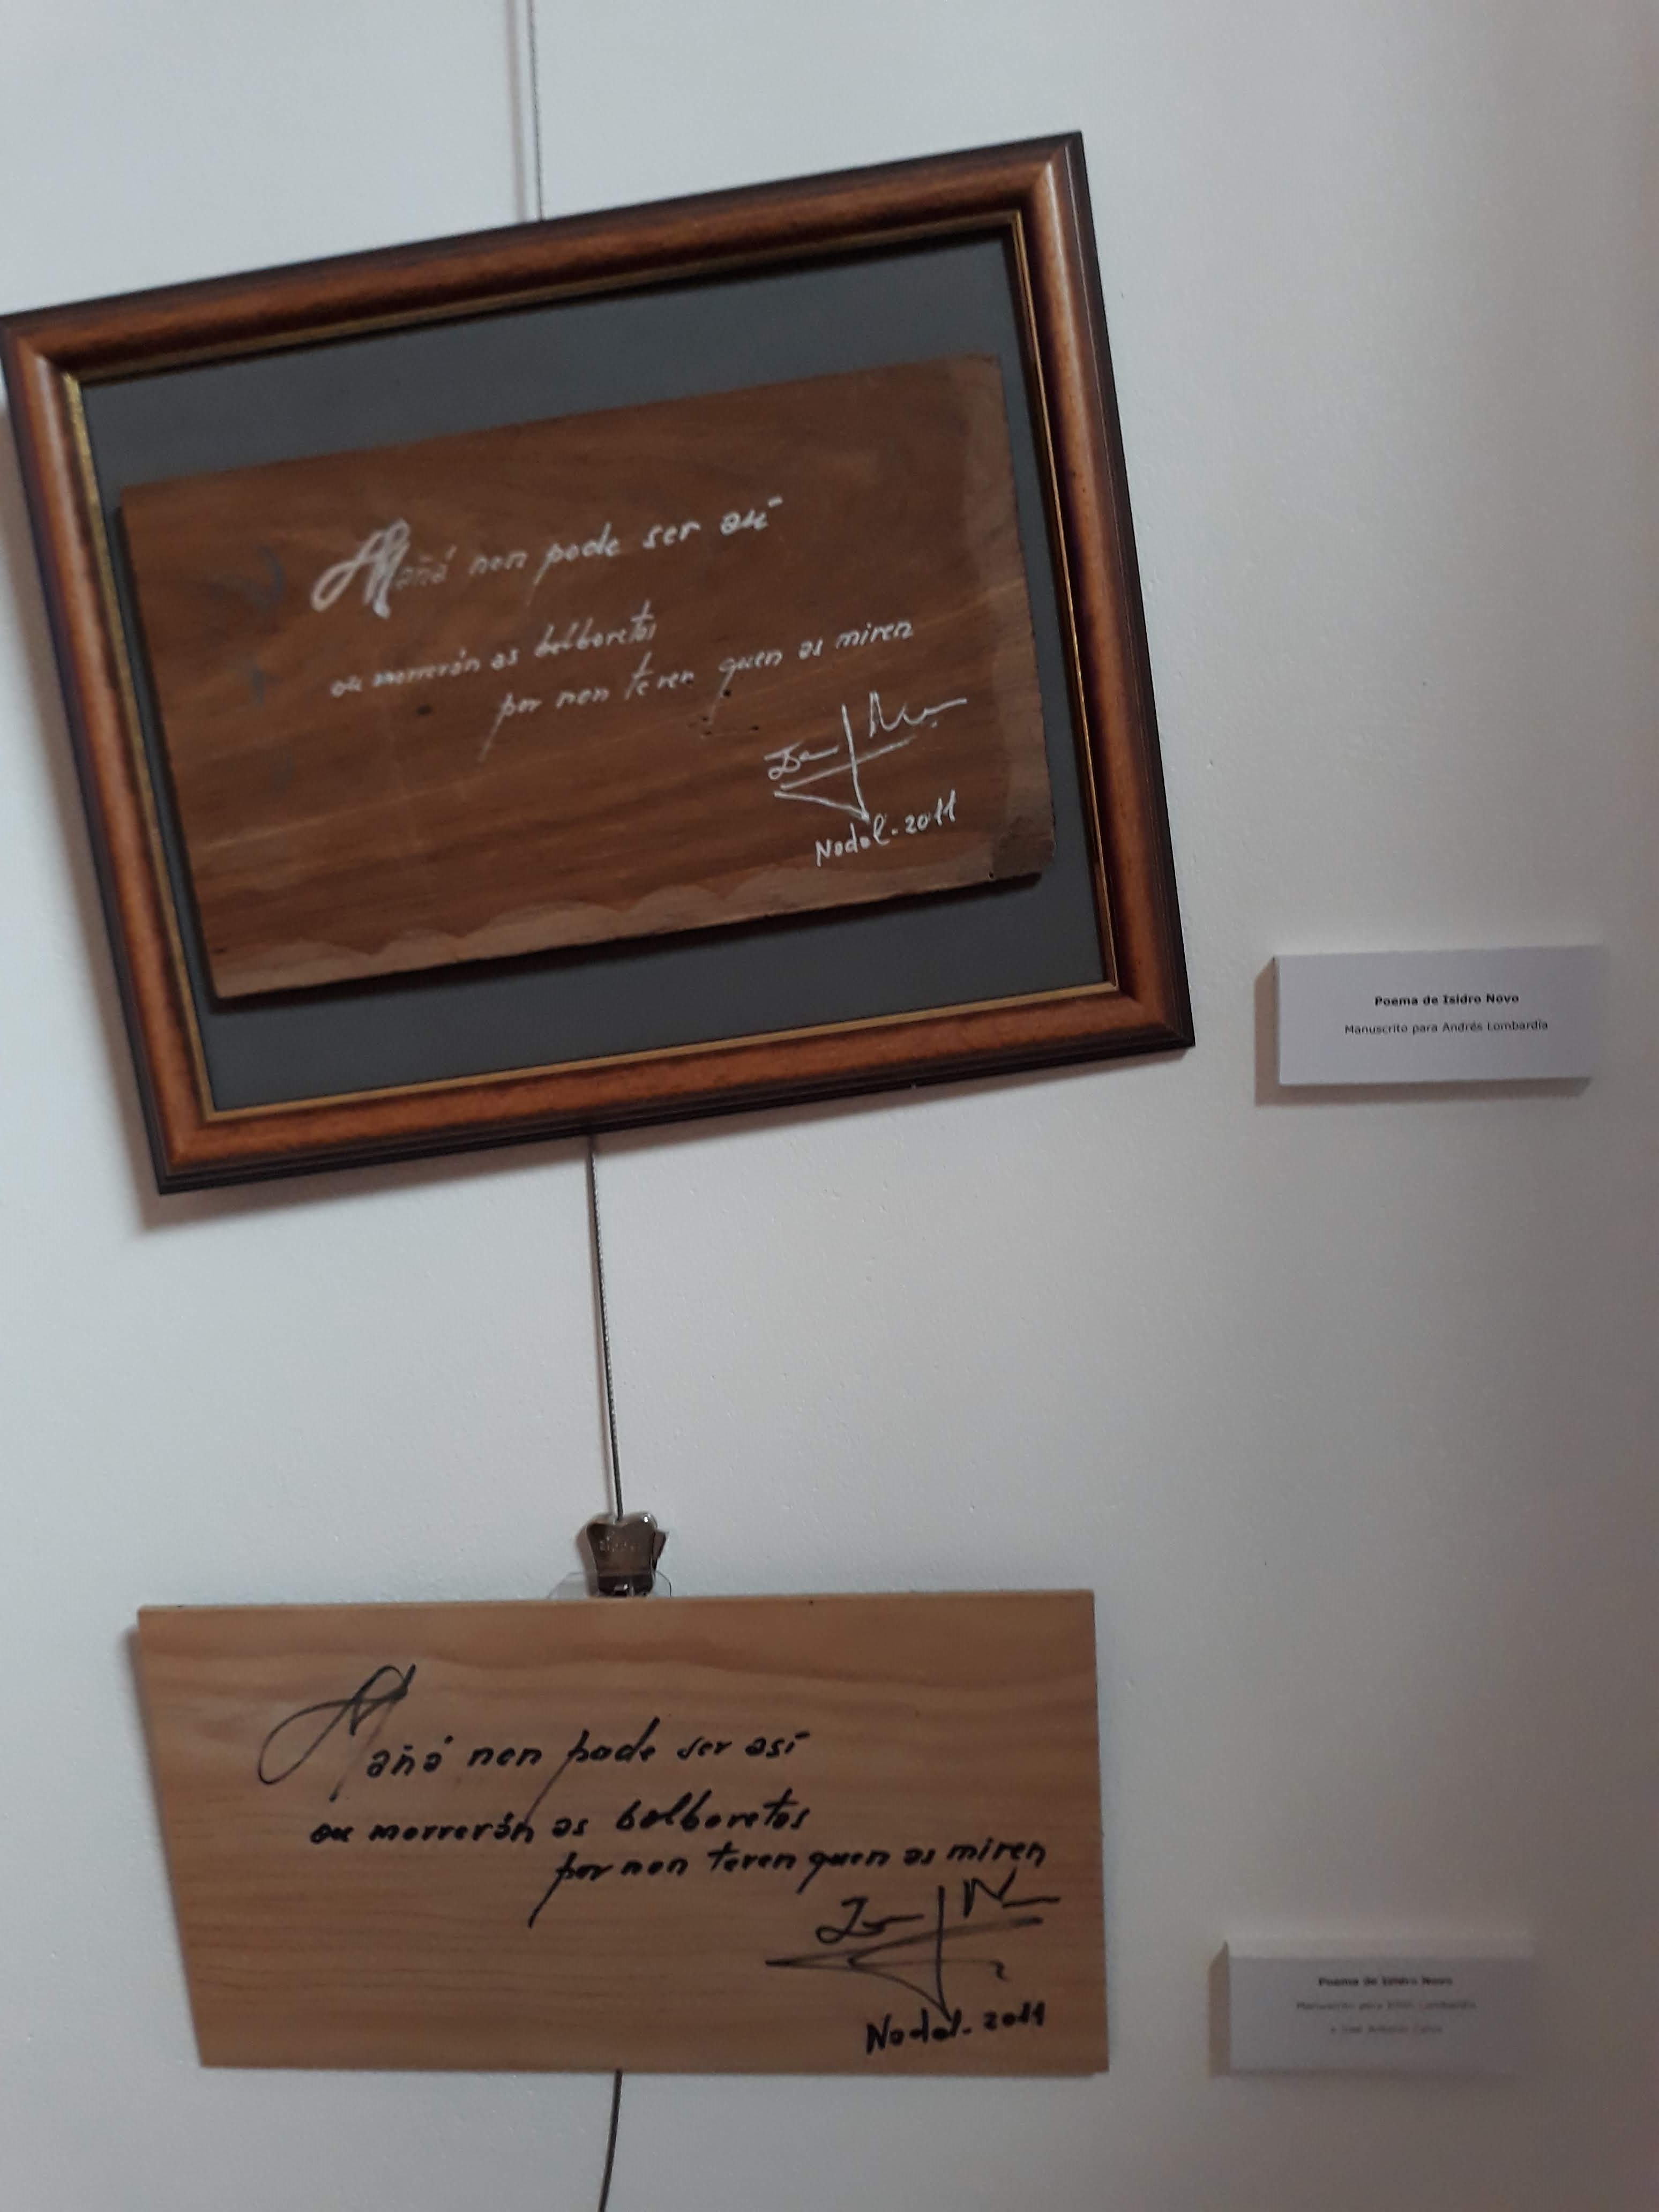 Mañá non pode ser así
ou morrerán as bolboretas
por non teren quen as miren
Nadal-2011
Poema de Isidro Novo
Manuscrito para Andrés Lombardía
Mañá non pode ser así
ou morrerán as bolboretas
por non teren quen as miren
Nadal-2011
Poema de Isidro Novo
Manuscrito para